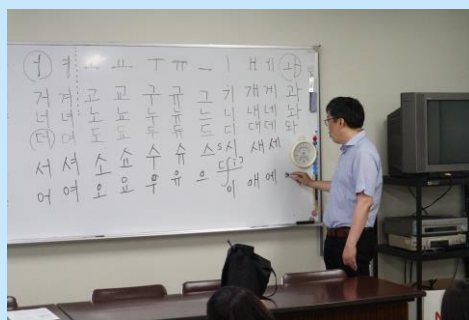 ㅓ ㅕ ㅗ ㅛ ㅜ ㅠ ㅡ ㅣ ㅐ ㅔ ㅘ
거 겨 고 교 구 규 그 기 개 게 과
너 녀 노 뇨 누 뉴 느 니 내 네 놔
더 뎌 도 됴 두 듀 드 디 대 데 돠
서 셔 소 쇼 수 슈 스 시 새 세
[ʃi]
어 여 오 요 우 유 으 이 애 에